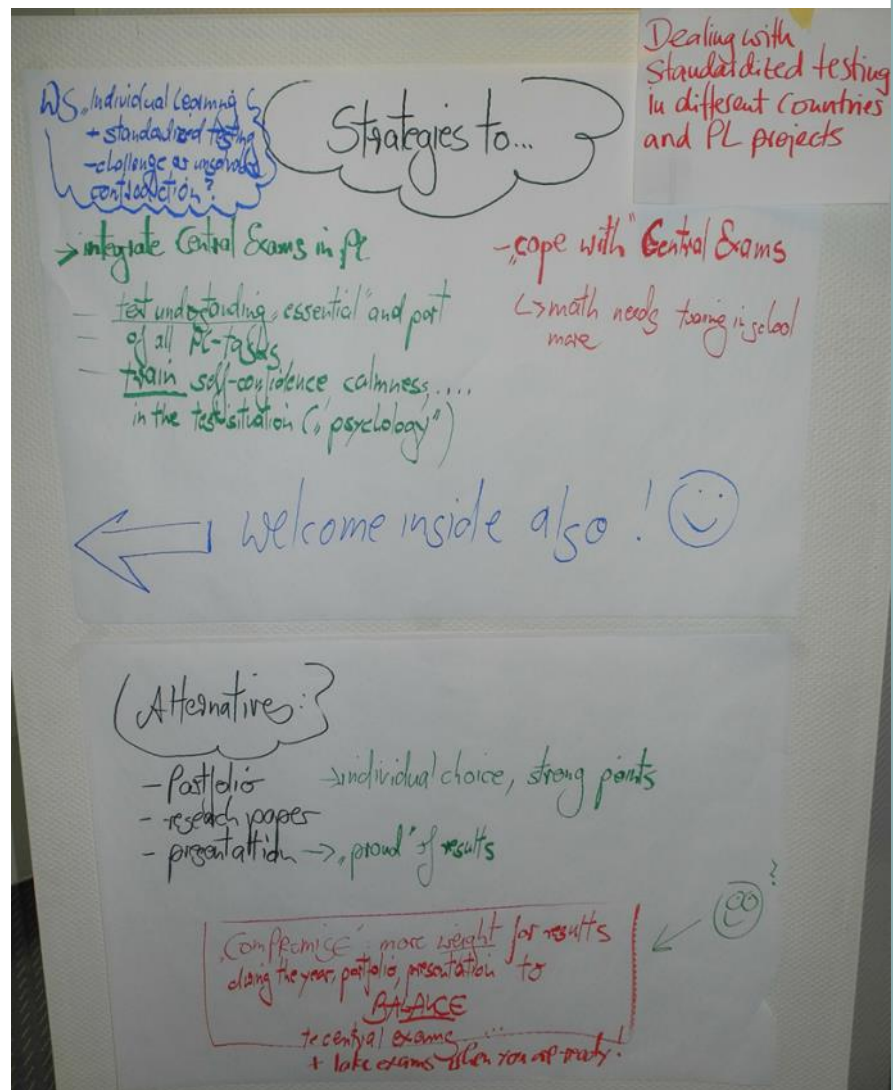 Dealing with
standardized testing
in different countries
and PL projects
WS „Individual Learning
+ standardized testing
- challenge or unsolved
contradiction?
Strategies to...
→ integrate Central Exams in PL
- text understanding „essential" and part
of all PL-tasks
- train self-confidence, calmness, ....
in the test situation („psychology")
- „cope with" Central Exams
↳ math needs training in school
more
← welcome inside also!
Alternatives:
- Portfolio → individual choice, strong points
- research paper
- presentattion → „proud" of results
?
„Compromise" more weight for results
during the year, portfolio, presentation to
BALANCE
te central exams ...
+ take exams when you are ready!